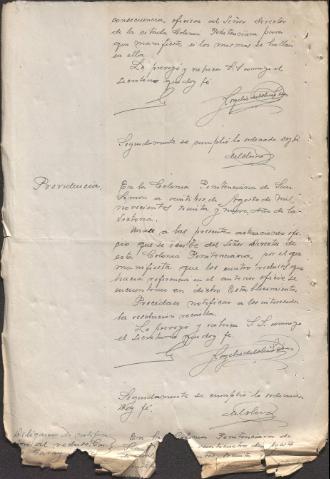 consecuencia, ofíciese al Señor Director
de la citada Colonia Penitenciaria para
que manifieste si los mismos se hallan
en ella.
Lo proveyó y rubrica S.S. conmigo el
Secretario que doy fé.
Seguidamente se cumplió lo ordenado doy fé
Providencia,
En la Colonia Penitenciaria de San
Simón a veintitres de Agosto de mil
novecientos treinta y nueve, Año de la
Victoria.
Unase a las presentes actuaciones ofi
cio que se recibe del Señor Director de
esta Colonia Penitenciaria, por el que
manifiesta que los cuatro reclusos que
hacía referencia en el anterior oficio se
encuentran en dicho Establecimiento.
Procédase notificar a los interesados
la resolución recaída.
Lo proveyó y rubrica S.S. conmigo
el Secretario que doy fe
Seguidamente se cumplió lo ordenado
doy fé.
En la Colonia Penitenciaria de